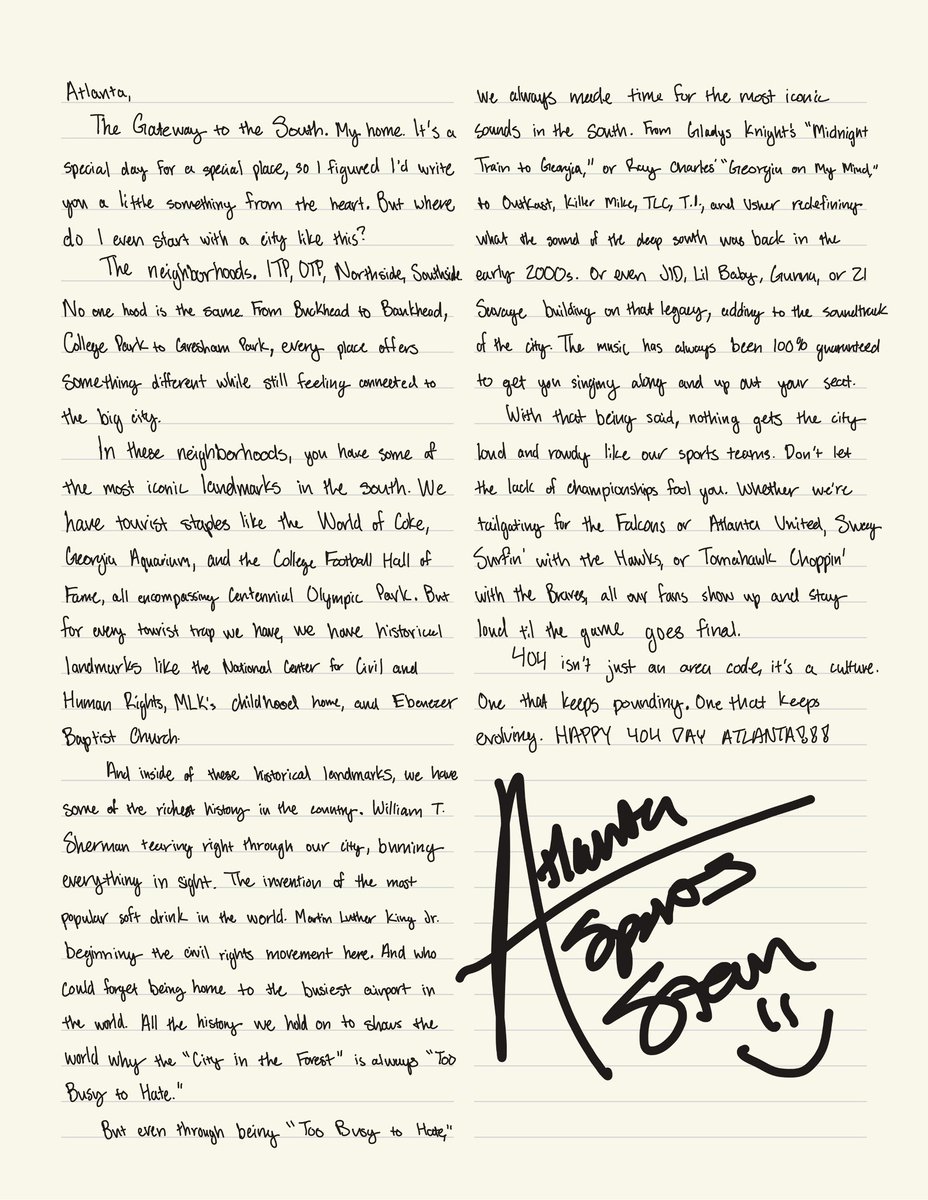 Atlanta,
The Gateway to the South. My home. It's a
special day for a special place, so I figured I'd write
you a little something from the heart. But where
do I even start with a city like this?
The neighborhoods. ITP, OTP, Northside, Southside
No one hood is the same. From Buckhead to Bankhead,
College Park to Gresham Park, every place offers
something different while still feeling connected to
the big city.
In these neighborhoods, you have some of
the most iconic landmarks in the south. We
have tourist staples like the World of Coke,
Georgia Aquarium, and the College Football Hall of
Fame, all encompassing Centennial Olympic Park. But
for every tourist trap we have, we have historical
landmarks like the National Center for Civil and
Human Rights, MLK's childhood home, and Ebenezer
Baptist Church.
And inside of these historical landmarks, we have
some of the richest history in the country. William T.
Sherman tearing right through our city, burning
everything in sight. The invention of the most
popular soft drink in the world. Martin Luther King Jr.
beginning the civil rights movement here. And who
could forget being home to the busiest airport in
the world. All the history we hold on to shows the
world why the "City in the Forest" is always "Too
Busy to Hate."
But even through being "Too Busy to Hate,"
we always made time for the most iconic
sounds in the South. From Gladys Knight's "Midnight
Train to Georgia," or Ray Charles' "Georgia on My Mind,"
to Outkast, Killer Mike, TLC, T.I., and Usher redefining
what the sound of the deep south was back in the
early 2000s. Or even JID, Lil Baby, Gunna, or 21
Savage building on that legacy, adding to the soundtrack
of the city. The music has always been 100% guaranteed
to get you singing along and up out your seat.
With that being said, nothing gets the city
loud and rowdy like our sports teams. Don't let
the lack of championships fool you. Whether we're
tailgating for the Falcons or Atlanta United, Swag
Surfin' with the Hawks, or Tomahawk Choppin'
with the Braves, all our fans show up and stay
loud til the game goes final.
404 isn't just an area code, it's a culture.
One that keeps pounding. One that keeps
evolving. HAPPY 404 DAY ATLANTA!!!
Atlanta
Sports
Stan